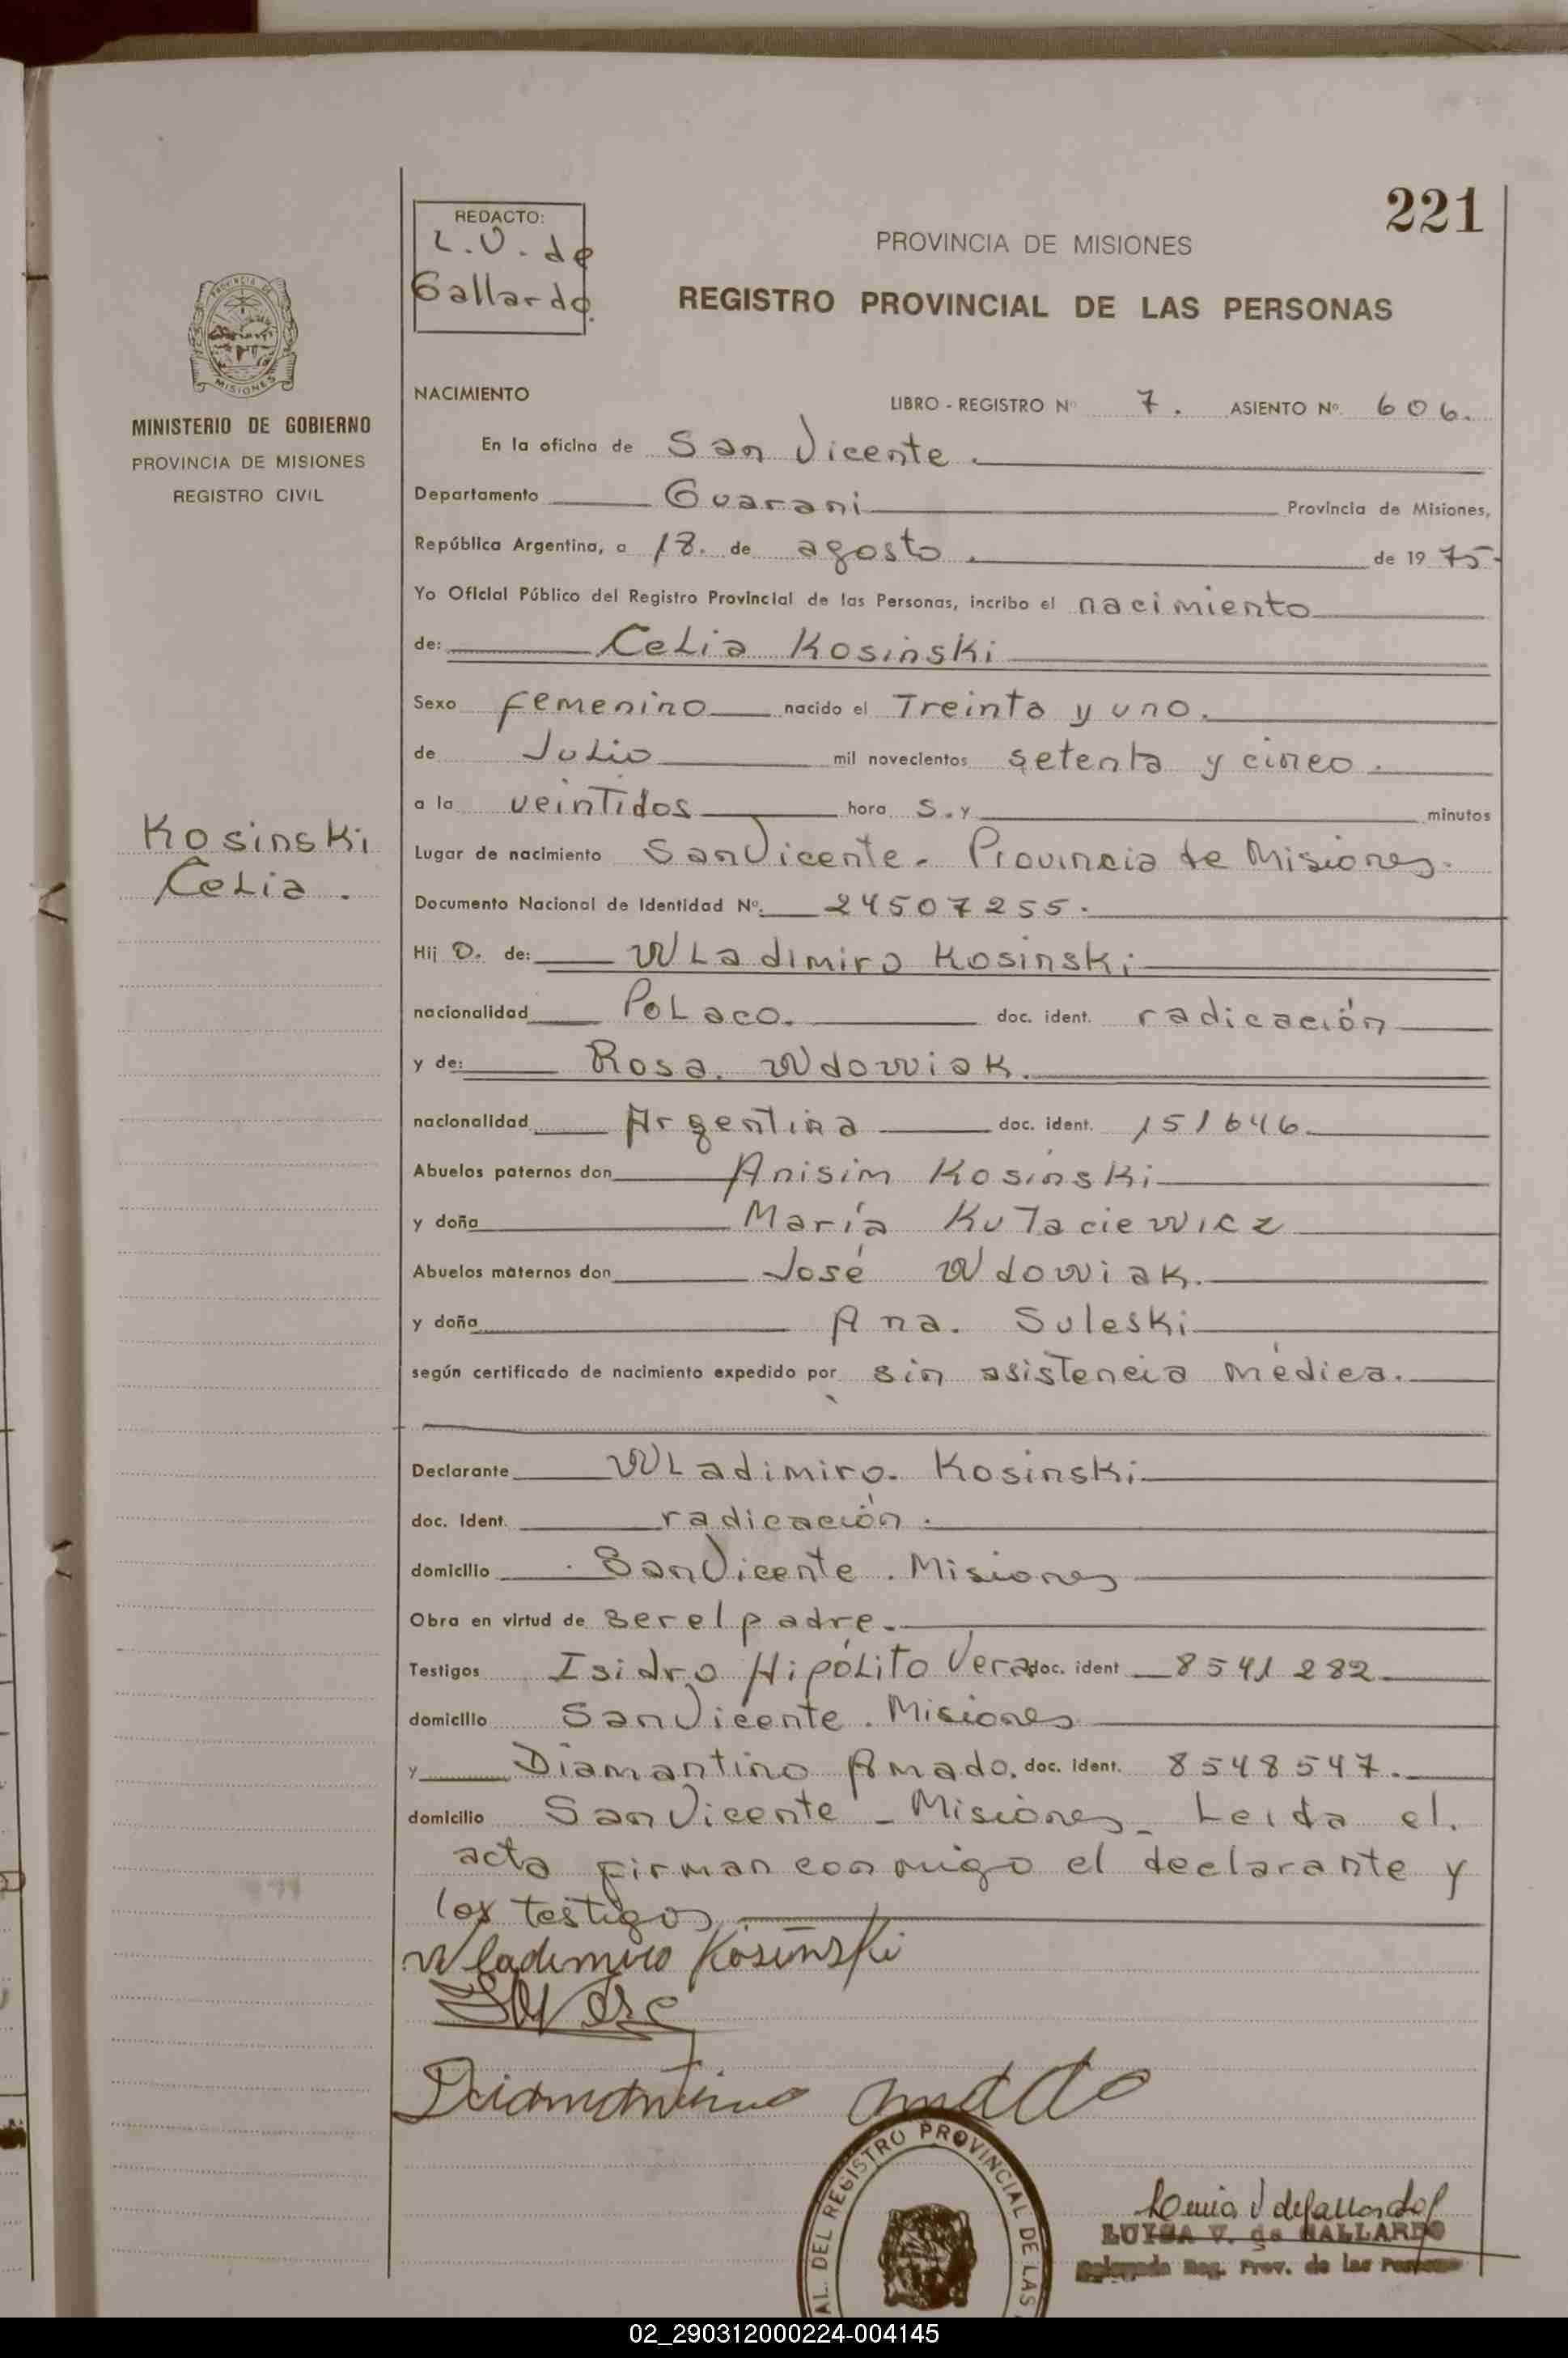 221
REDACTO:
L.V. de
Gallardo.
PROVINCIA DE MISIONES
REGISTRO PROVINCIAL DE LAS PERSONAS
PROVINCIA DE
MISIONES
MINISTERIO DE GOBIERNO
PROVINCIA DE MISIONES
REGISTRO CIVIL
Kosinski
Celia.
NACIMIENTO LIBRO - REGISTRO Nº 7. ASIENTO Nº 606.
En la oficina de San Vicente.
Departamento Guarani Provincia de Misiones,
República Argentina, a 18. de agosto. de 1975-
Yo Oficial Público del Registro Provincial de las Personas, incribo el nacimiento
de: Celia Kosinski
Sexo femenino nacido el Treinta y uno.
de Julio mil novecientos setenta y cinco.
a la veintidos hora s. y minutos
Lugar de nacimiento San Vicente. Provincia de Misiones.
Documento Nacional de Identidad Nº. 24507255.
Hij a. de: Wladimiro Kosinski
nacionalidad Polaco. doc. ident. radicación
y de: Rosa. Wdowiak.
nacionalidad Argentina doc. ident. 151646
Abuelos paternos don Anisim Kosinski
y doña María Kutaciewicz
Abuelos maternos don José Wdowiak.
y doña Ana. Suleski
según certificado de nacimiento expedido por sin asistencia médica.
Declarante Wladimiro. Kosinski
doc. Ident. radicación.
domicilio San Vicente. Misiones
Obra en virtud de ser el padre.
Testigos Isidro Hipólito Vera doc. ident 8541282
domicilio San Vicente. Misiones
y Diamantino Amado. doc. ident. 8548547.
domicilio San Vicente - Misiones- Leida el.
acta firman conmigo el declarante y
los testigos
Wladimiro Kosinski
Diamantino amado
AL DEL REGISTRO PROVINCIAL DE LAS
LUISA V. de GALLARDO
Delegada Reg. Prov. de las Personas
02_290312000224-004145